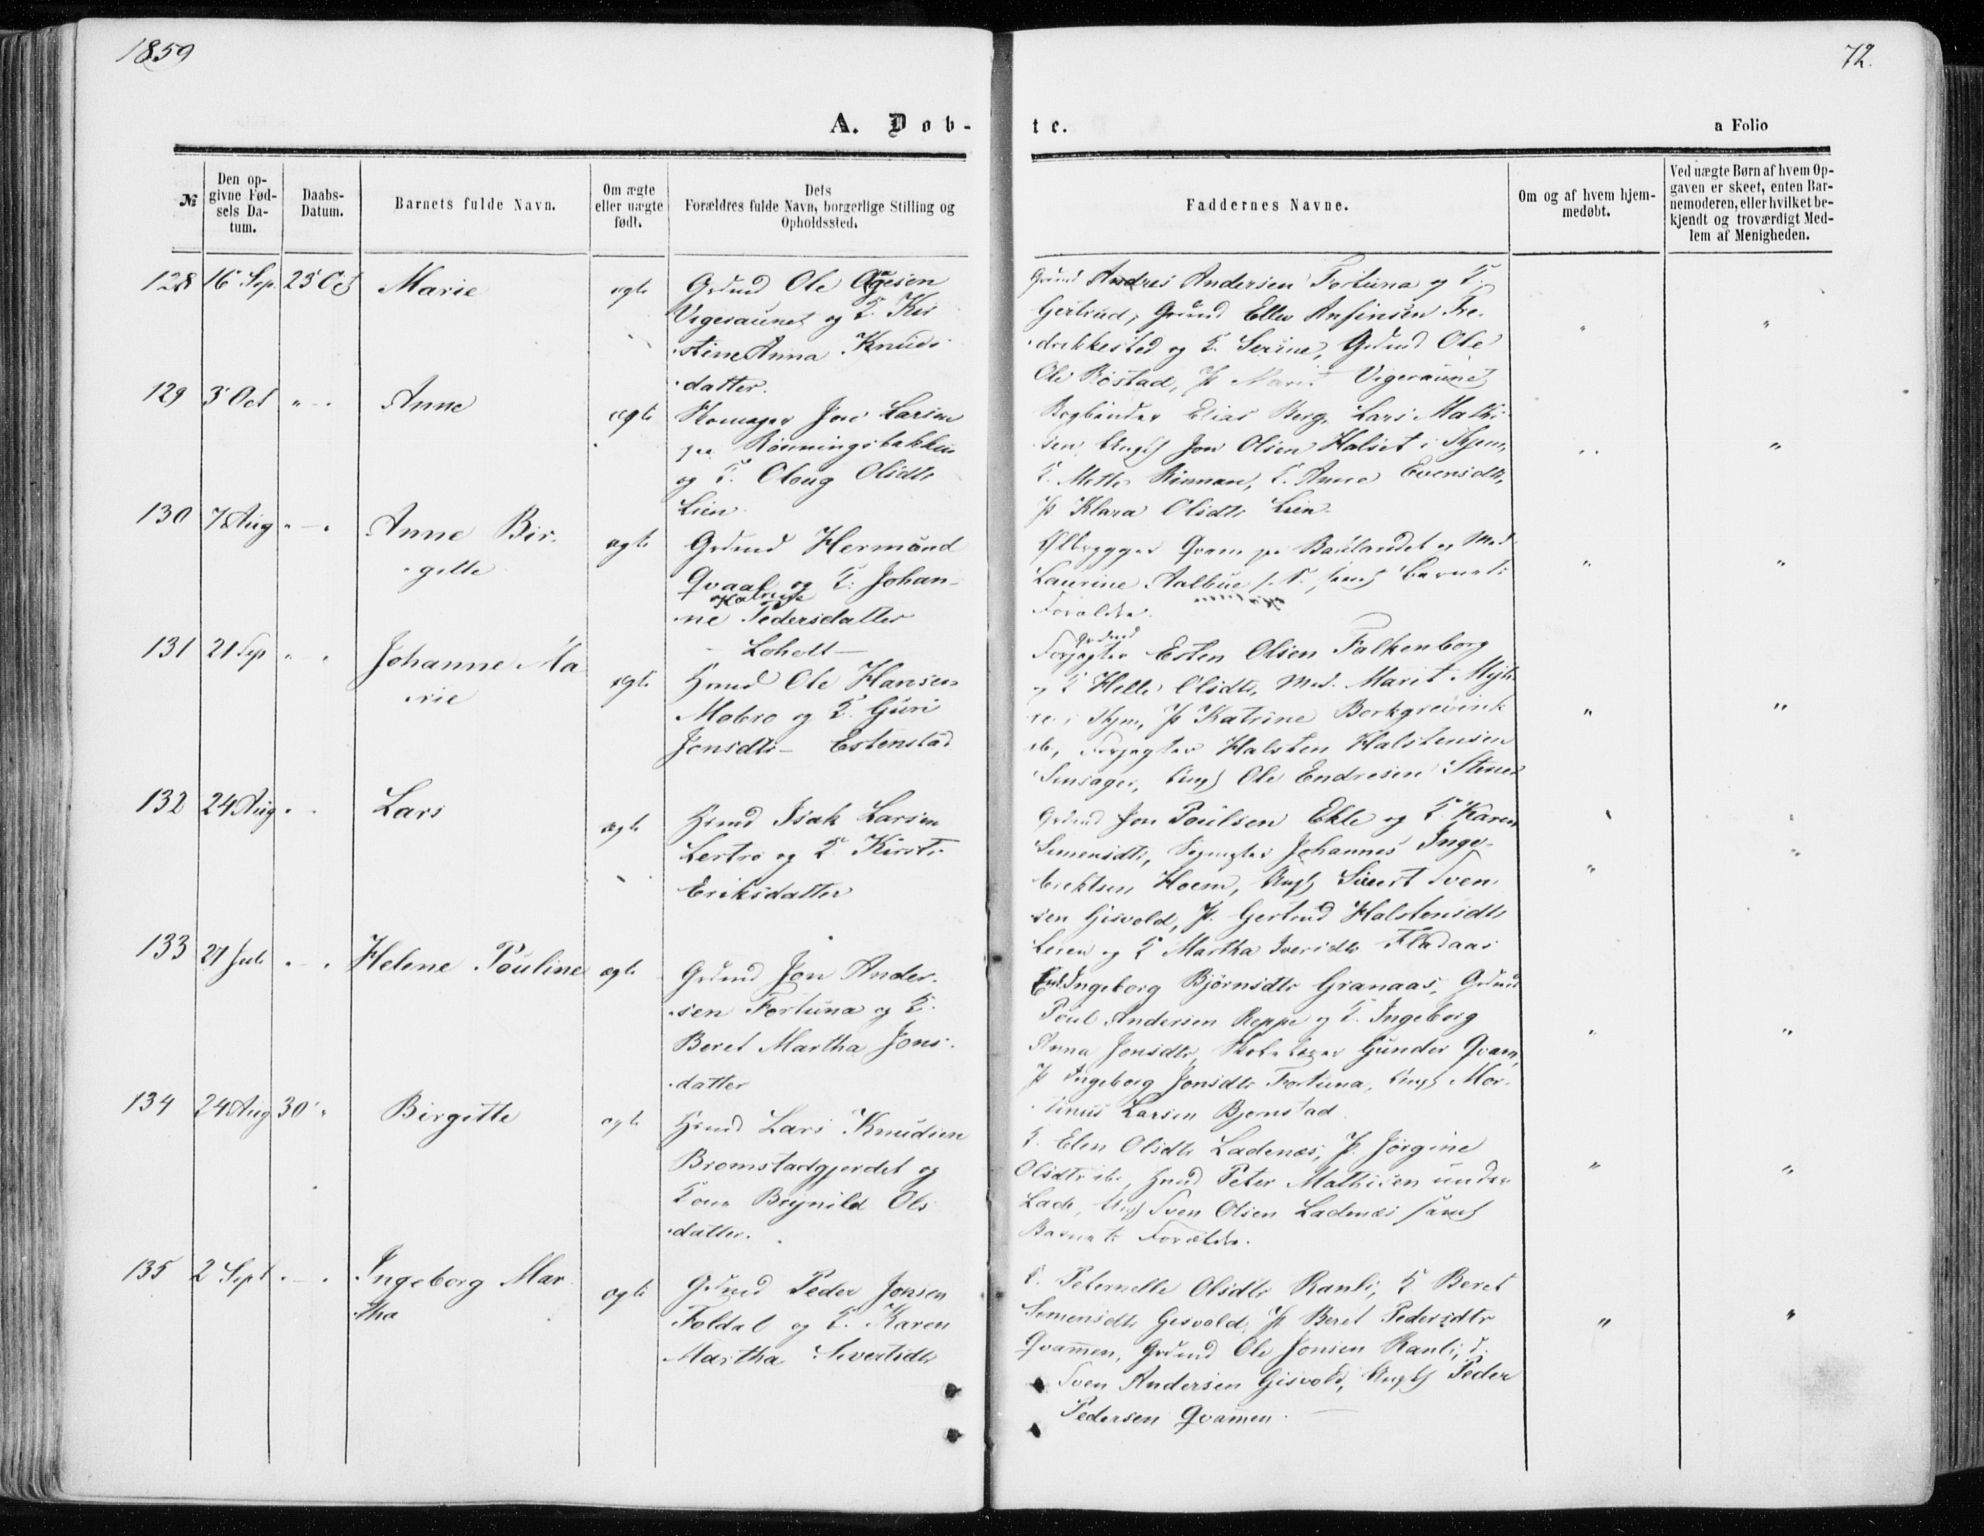 1859
72.
A. Døb-
te.
a Folio
№
Den op-
givne Fød-
sels Da-
tum.
Daabs-
Datum.
Barnets fulde Navn.
Om ægte
eller uægte
født.
Dets
Forældres fulde Navn, borgerlige Stilling og
Opholdssted.
Faddernes Navne.
Om og af hvem hjem-
medøbt.
Ved uægte Børn af hvem Op-
gaven er skeet, enten Bar-
nemoderen, eller hvilket be-
kjendt og troværdigt Med-
lem af Menigheden.
128 16 Sep. 23 Oct Marie ægte
Grdmd Ole Aagesen
Vigeraunet og K. Kir
stine Anna Knuds-
datter.
Grdmd Andres Andersen Fortuna og K.
Gertrud, Grdmd Ellev Ansinsen Fre-
drikkested og K. Serine, Grdmd Ole
Ols Rostad, P. Marit Vigeraunet
129 3 Oct " - . Anne ægte
Skomager Jon Larsen
paa Rønningsbakken
og K. Oloug Olsdtr
Lien.
Bogbinder Elias Berg, Lars Mathi-
sen, Ungk Jon Olsen Halset i Thjem,
K. Mette Rinnan, K. Anne Evensdtr,
P. Klara Olsdtr Lien.
130 7 Aug " - " Anne Bir-
gitte
ægte
Grdmd Hermand
Qvaal og K. Johan-
ne Pedersdatter
Ølbrygger Qvam paa Baklandet og Mad.
Laurine Aalbue s. S., samt Barnets
Forældre.
131 21 Sep " " Johanne Ma
rie
ægte
- Loholt -
Hmd Ole Hansen
Mobro og K. Guri
Jonsdtr - Estenstad
Grdmd
Esten Olsen Falkenborg
og K Helle Olsdtr, Mad. Marit
P. Katrine Borkgrevink
Halsten Halstensen
Ungk Ole Endresen
132 24 Aug " . Lars ægte
Hmd Isak Larsen
Lertro og K. Kirsti
Eriksdatter
Grdmd Jon Poulsen Ekle og K. Karen
Simensdtr, Johannes Inge-
brektsen Hoem, Ungk Sivert Sven
sen Gisvold, P. Gertrud Halstensdtr
Leren og K Martha Iversdtr Fladaas
133 27 Juli " - . Helene Pouline ægte
Grdmd Jon Ander-
sen Fortuna og K.
Beret Martha Jons-
datter
Enk. Ingeborg Bjørnsdtr Granaas, Grdmd
Poul Andersen Reppe og K. Ingeborg
Anna Jonsdtr, Gunder Qvam,
P. Ingeborg Jonsdtr Fortuna, Ungk Mor-
tinus Larsen Bjørnstad
134 24 Aug 30 " Birgitte ægte
Hmd Lars Knudsen
Bromstadgjerdet og
Kone Brynild Ols
datter.
K. Elen Olsdtr Ladenæs, P. Jørgine
Olsdtr ib., Hmd Peter Mathisen under
Lade, Ungk Sven Olsen Ladenæs samt
Barnets Forældre.
135 2 Sept " - " Ingeborg Mar-
tha
ægte
Grdmd Peder Jonsen
Foldal og K. Karen
Martha Sivertsdtr
K. Peternelle Olsdtr Ranli, K Beret
Simensdtr Gisvold, P. Beret Pedersdtr
Qvammen, Grdmd Ole Jonsen Ranli, d:
Sven Andersen Gisvold, Ungk Peder
Pedersen Qvammen.